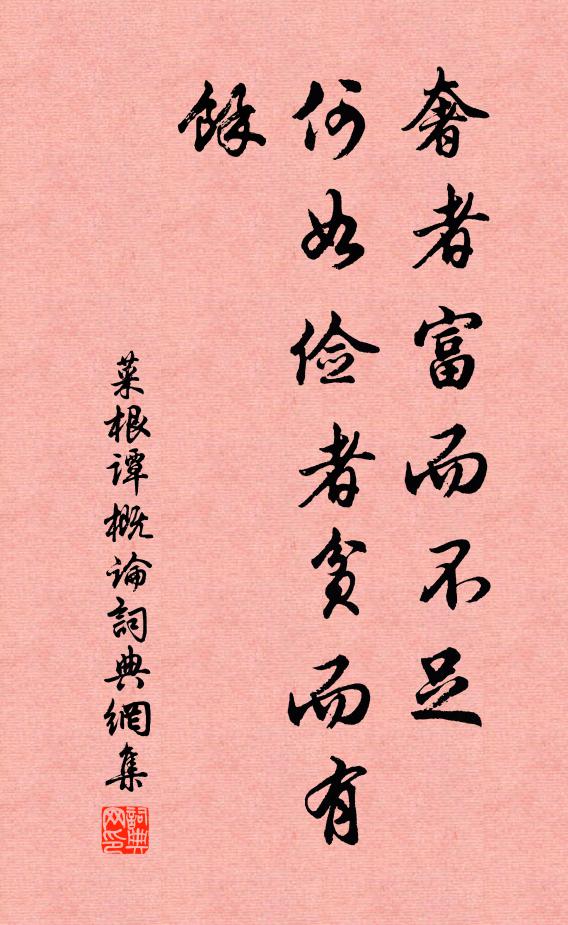 奢者富而不足
何如俭者贫而有
餘
菜根谭概论詞典網集
詞典
网印